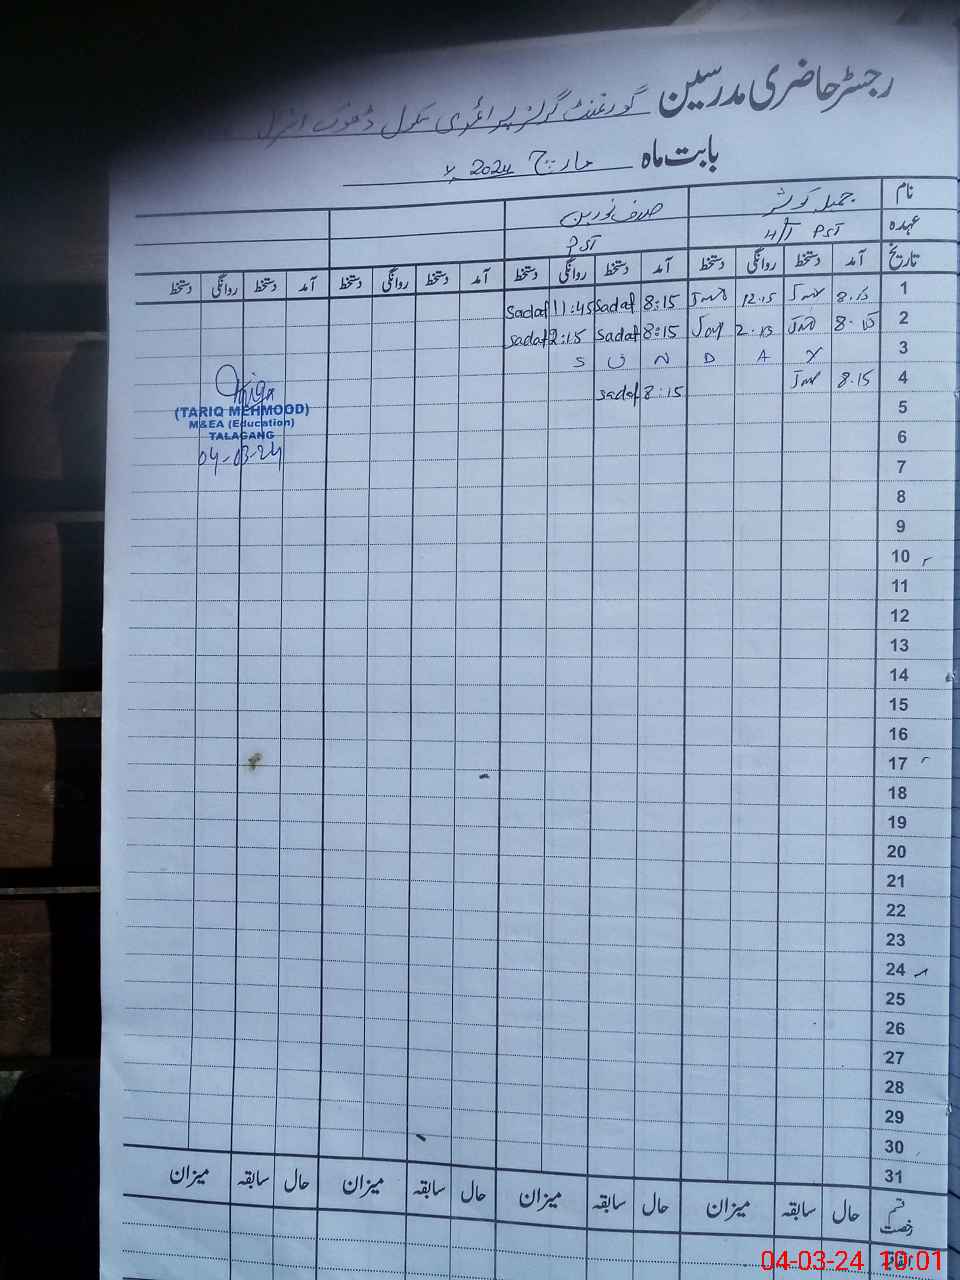 رجسٹر حاضری مدرسین گورنمنٹ گرلز پرائمری سکول ڈھوک
بابت ماہ مارچ 2024ء
نام جمیلہ کوثر صدف نورین
عہدہ H/T PST PST
تاریخ آمد دستخط روانگی دستخط آمد دستخط روانگی دستخط آمد دستخط روانگی دستخط آمد دستخط روانگی دستخط
1 8.15 12.15 8:15 Sadaf 11:45 Sadaf
2 8.15 2.15 8:15 Sadaf 2:15 Sadaf
3 S U N D A Y
4 8.15 8:15 Sadaf
(TARIQ MEHMOOD)
M&EA (Education)
TALAGANG
04-03-24
5
6
7
8
9
10
11
12
13
14
15
16
17
18
19
20
21
22
23
24
25
26
27
28
29
30
31
قسم رخصت حال سابقہ میزان حال سابقہ میزان حال سابقہ میزان حال سابقہ میزان
04-03-24 10:01